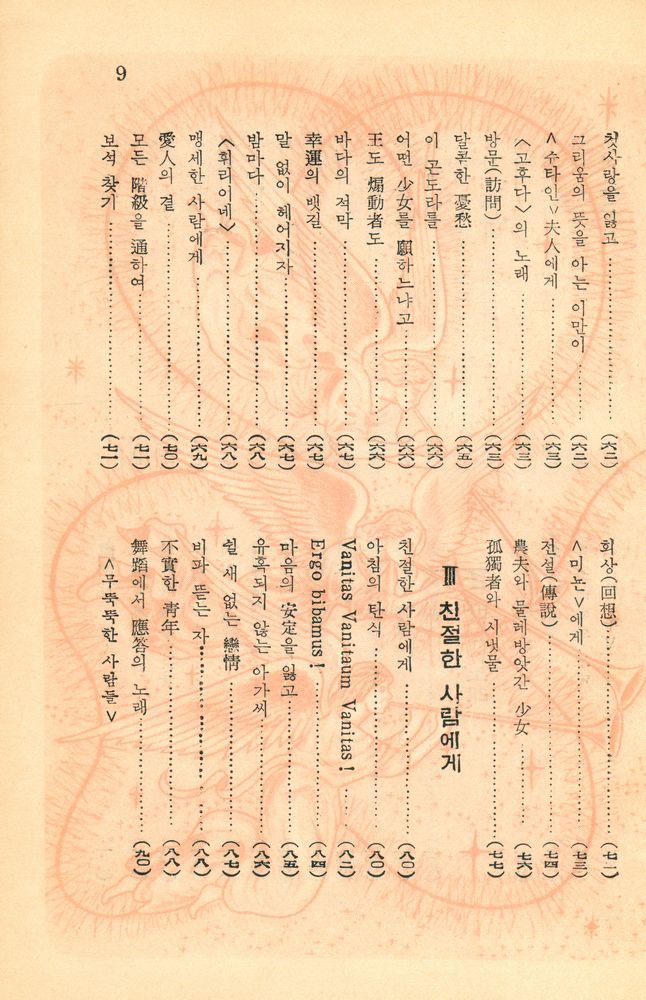 9
첫사랑을 잃고 (六二)
그리움의 뜻을 아는 이만이 (六二)
<슈타인>夫人에게 (六三)
<고후다>의 노래 (六三)
방문(訪問) (六三)
달콤한 憂愁 (六五)
이 곤도라를 (六六)
어떤 少女를 願하느냐고 (六六)
王도 煽動者도 (六六)
바다의 적막 (六七)
幸運의 뱃길 (六七)
말 없이 헤어지자 (六七)
밤마다 (六八)
<휘리이네> (六八)
맹세한 사람에게 (六九)
愛人의 곁 (七○)
모든 階級을 通하여 (七一)
보석 찾기 (七一)
회상(回想) (七一)
<미뇬>에게 (七三)
전설(傳說) (七四)
農夫와 물레방앗간 少女 (七六)
孤獨者와 시냇물 (七七)
Ⅲ 친절한 사람에게
친절한 사람에게 (八○)
아침의 탄식 (八○)
Vanitas Vanitaum Vanitas! (八二)
Ergo bibamus! (八四)
마음의 安定을 잃고 (八五)
유혹되지 않는 아가씨 (八六)
쉴 새 없는 戀情 (八七)
비파 뜯는 자 (八八)
不實한 靑年 (八八)
舞蹈에서 應答의 노래 (九○)
<무뚝뚝한 사람들>